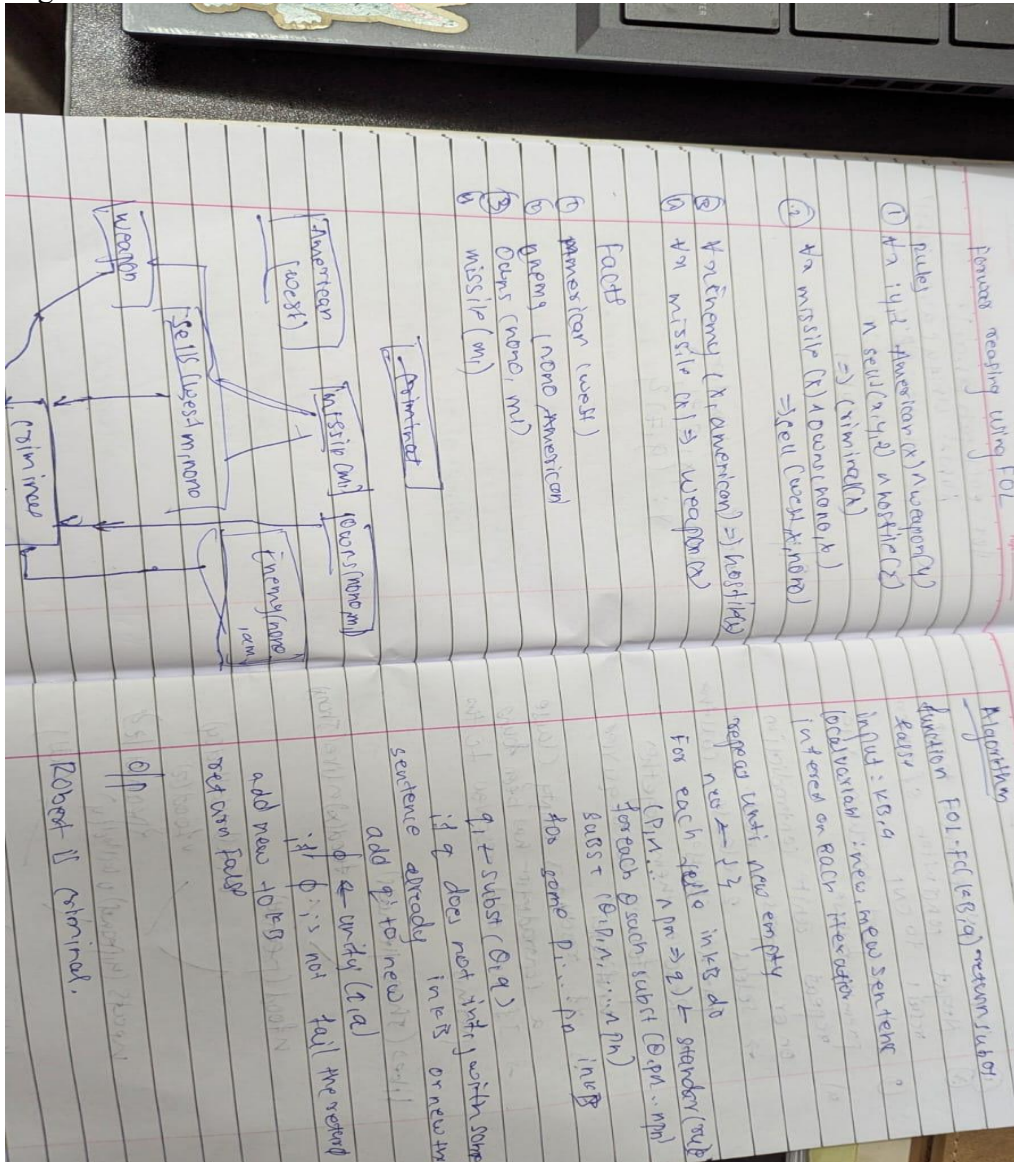 Forwar reasing using FOL
rules
① ∀x, y, z American(x) ∧ weapon(y)
∧ sells(x, y, z) ∧ hostile(z)
=> criminal(x)
② ∀x missile (x) ∧ owns(nono, x)
=> sell (west, x, nono)
③ ∀x Enemy (x, american) => hostile(x)
④ ∀x missile (x) => weapon(x)
Facts
① American (west)
② Enemy (nono, American)
③ Owns (nono, m1)
④ missile (m1)
criminal
American
(west)
missile(m1)
Owns(nono, m1)
Enemy(nono
, am)
sells(west m, nono
weapon
criminal
Algorithm
function FOL-FC(KB, q) returns subst
false
input : KB, q
local variabl : new, new sentenc
intered on each iteration
repeat until new empty
new ← { }
For each rule in KB do
(p1 ∧ .. ∧ pn => q) ← standar(rule
for each θ such subst (θ, p1 .. ∧ pn)
SUBST (θ, p1 ∧ ..... ∧ pn)
for some p1 ... pn in KB
q1 ← subst (θ, q)
if q does not unify with some
sentence already in KB or new the
add q to new
φ ← unify (q, a)
if φ is not fail the return
add new to KB
return False
O/P
Robert is criminal.